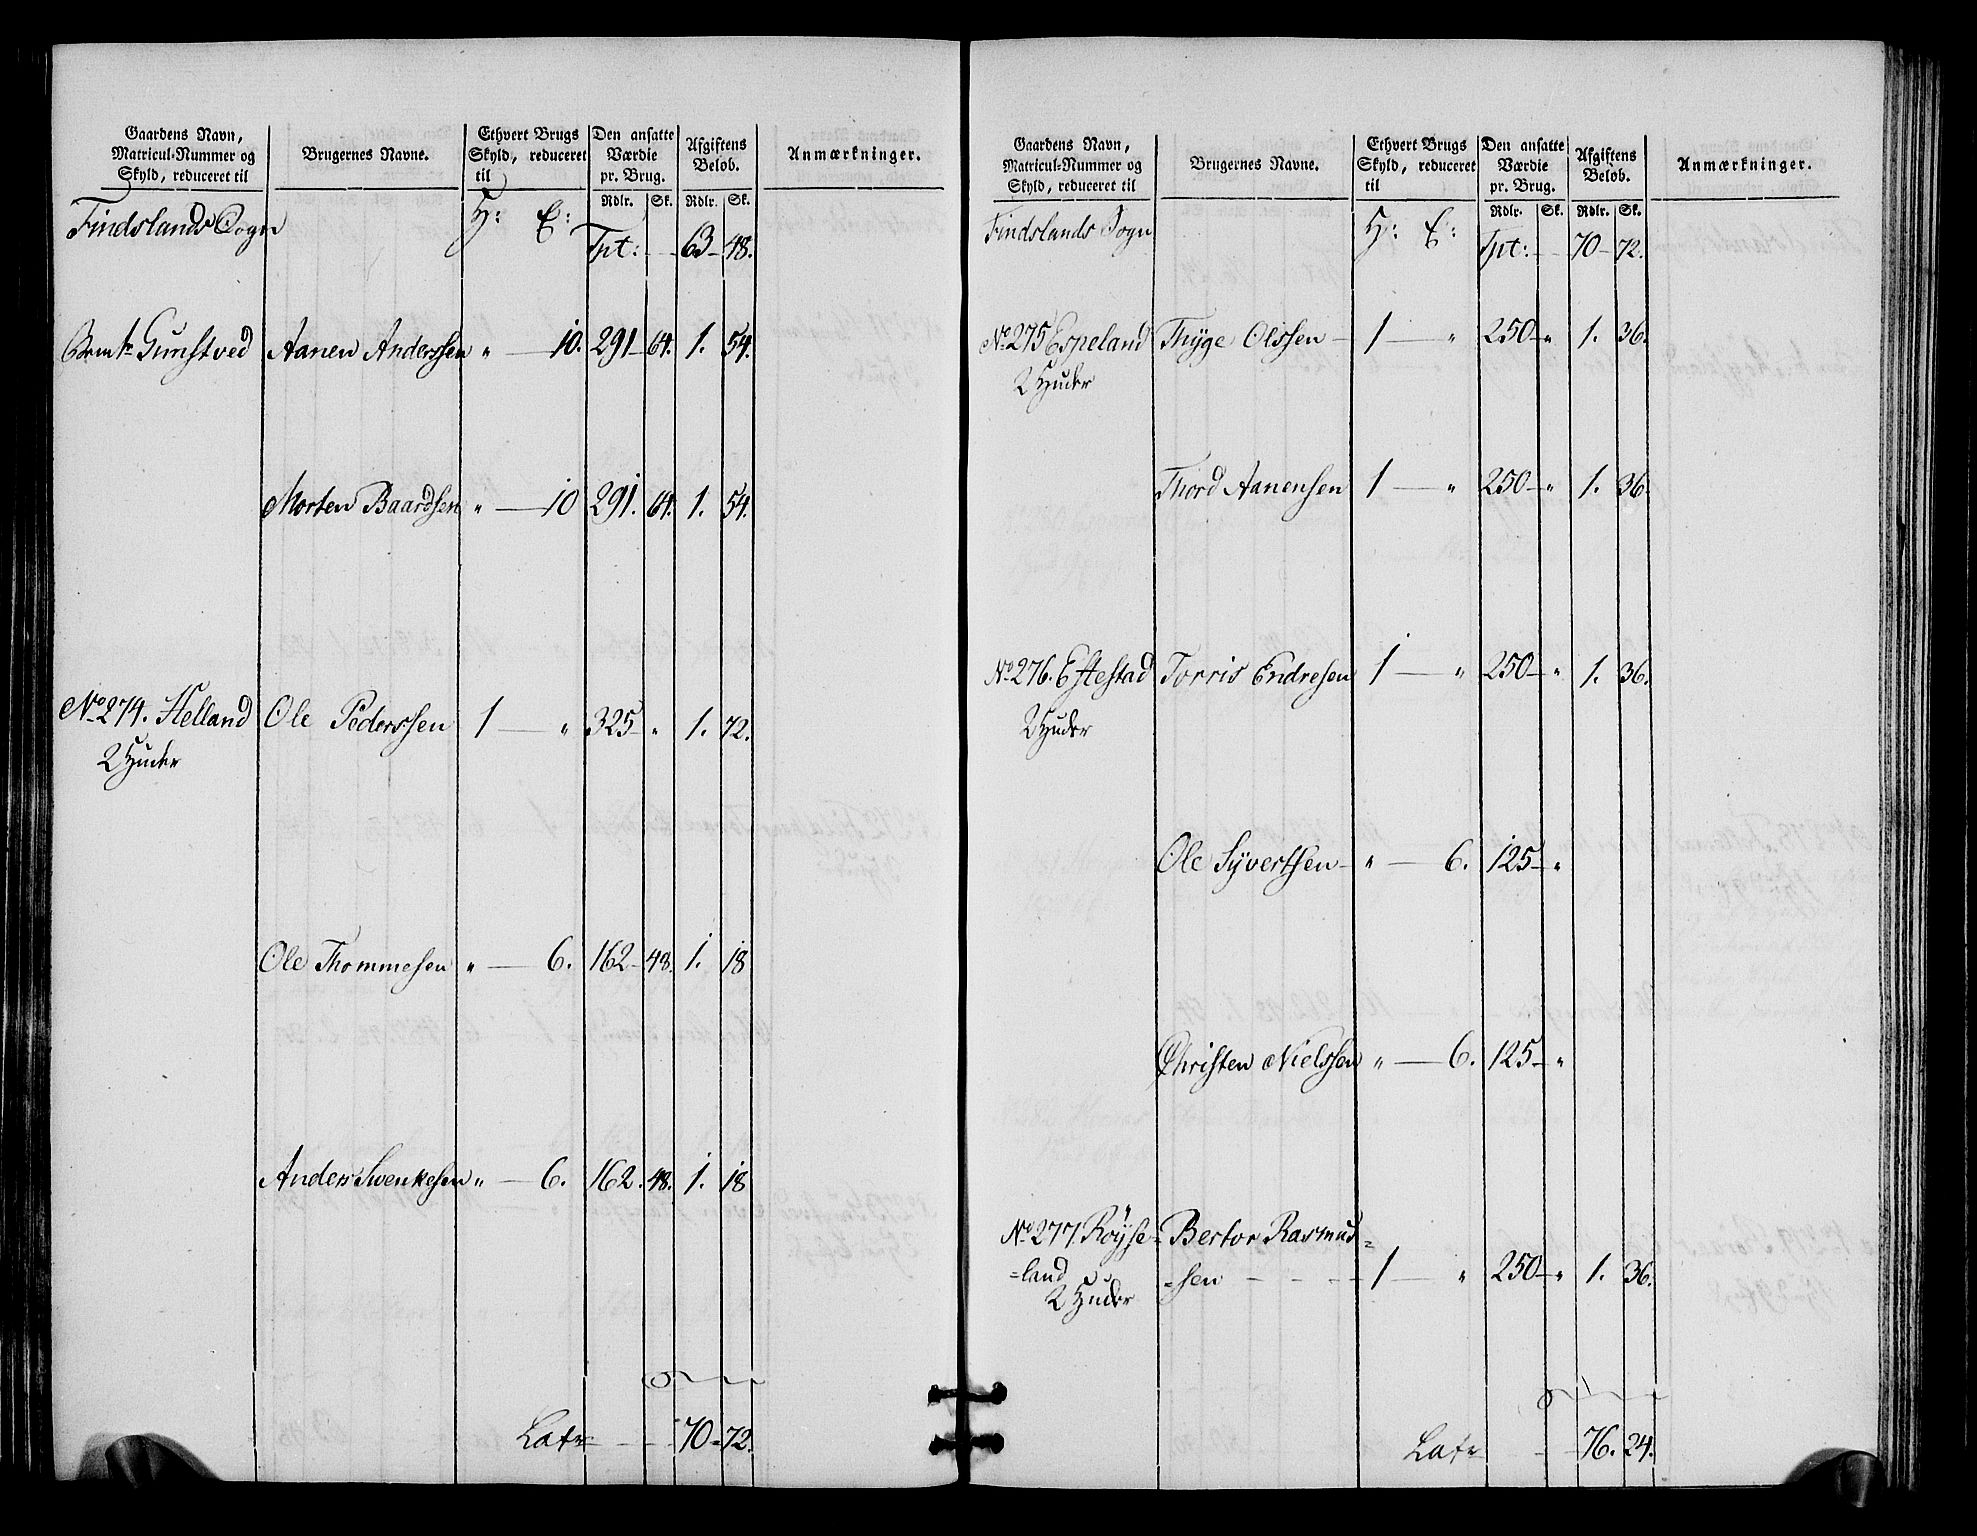 Gaardens Navn,
Matricul-Nummer og
Skyld, reduceret til
Brugernes Navne.
Ethvert Brugs
Skyld, reduceret
til
Den ansatte
Værdie
pr. Brug.
Afgiftens
Beløb.
Anmærkninger.
Rdlr. Sk. Rdlr. Sk.
Findslands Sogn H: E: Tpt: 63 48.
Gunstved Aanen Anderssen " 10. 291 64. 1. 54.
Morten Baardsen " 10 291. 64. 1. 54.
No 274. Helland Ole Pederssen 1 " 325 " 1. 72.
2 Huder
Ole Thommesen " 6. 162 48. 1. 18
Anders Svenkesen " 6. 162. 48. 1. 18
Latr 70 72.
Gaardens Navn,
Matricul-Nummer og
Skyld, reduceret til
Brugernes Navne.
Ethvert Brugs
Skyld, reduceret
til
Den ansatte
Værdie
pr. Brug.
Afgiftens
Beløb.
Anmærkninger.
Rdlr. Sk. Rdlr. Sk.
Findslands Sogn H: E: Tpt: 70 72.
No 275 Espeland Thÿge Olssen 1 " 250 " 1. 36.
2 Huder
Thord Aanensen 1 " 250 " 1. 36.
No 276. Eftestad Torris Endresen 1 " 250 " 1. 36.
2 Huder
Ole Sÿvertsen " 6. 125 "
Christen Nielssen " 6. 125 "
No 277. Röÿse= Bertor Rasmus=
=land =sen 1 " 250 " 1. 36.
2 Huder
Latr 76. 24.